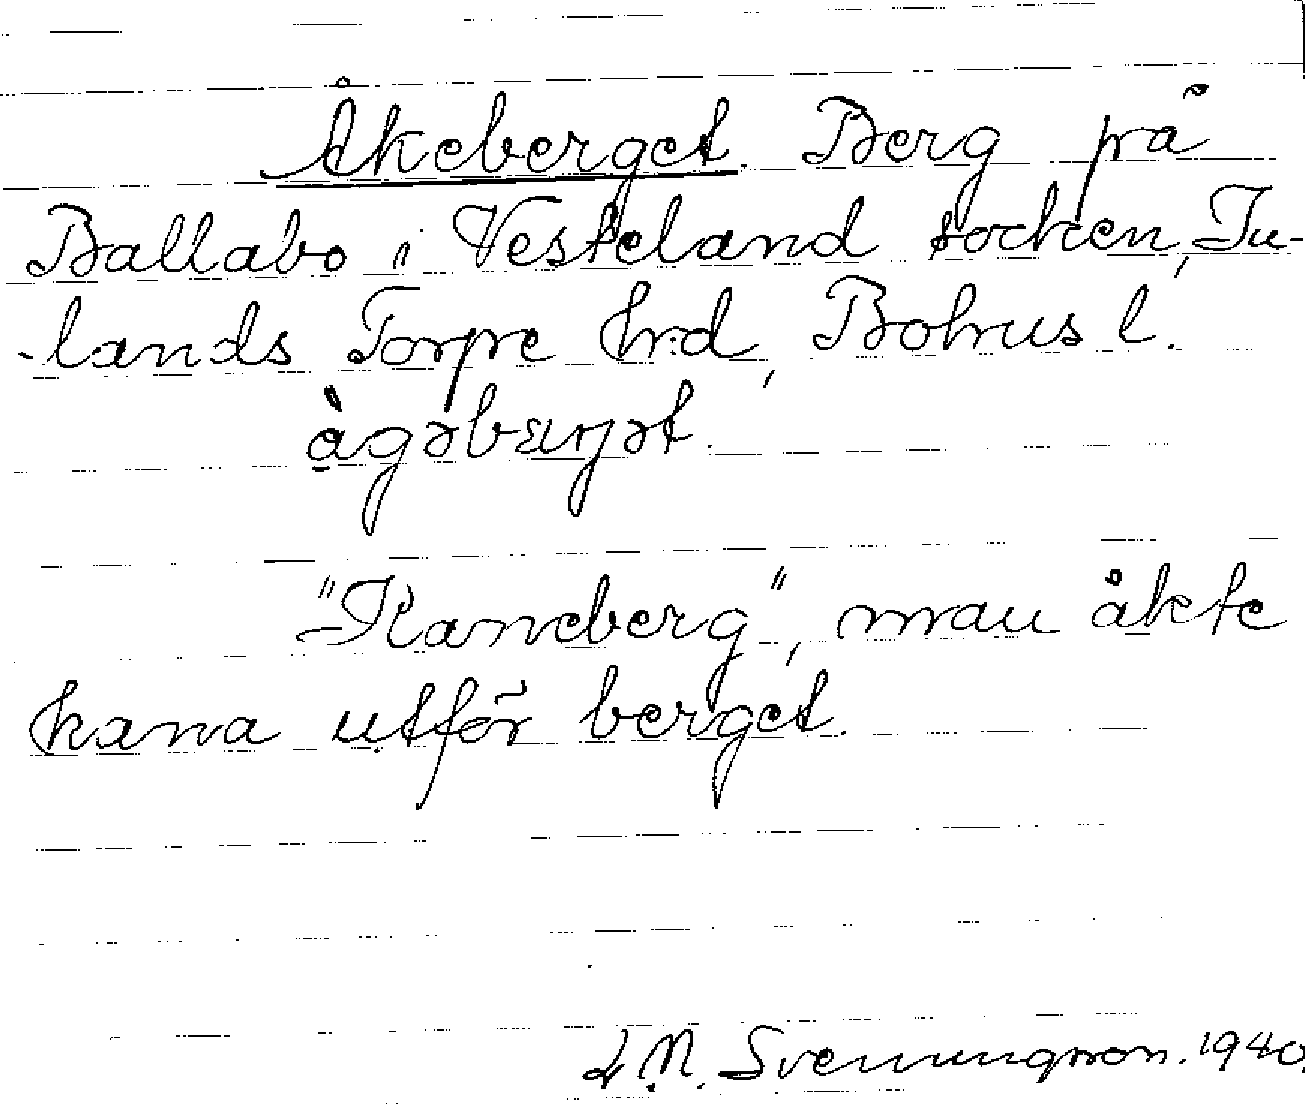 Åkeberget. Berg på
Ballabo i Vesteland socken, In-
-lands Torpe hrd, Bohus l.
ågəbærjət.
"Kaneberg", man åkte
kana utför berget.
L.N. Svenungsson. 1940.